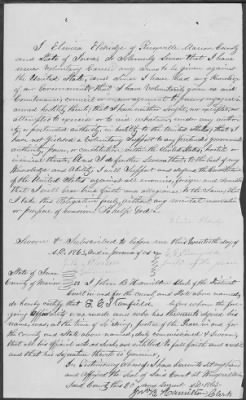 I Elvira Eldridge of Pleasville Marion County
and State of Iowa do solemnly swear that I have
never voluntarily borne arms against
the United States, since I have had
of an Government that I have voluntarily given no aid
Countenance, counsel or encouragement to persons engaged in
armed hostility thereto; that I have neither sought, nor accepted, nor
attempted to exercise or to aid whatever, under any author-
ity, or pretended authority, in hostility to the United States; that I
have not yielded a voluntary support to any pretended government,
authority, power, or constitution, within the United States, hostile or
inimical thereto; And I do further swear that to the best of my
knowledge and Ability, I will support and defend the Constitution
of the United States against all enemies, foreign and domestic
that I will bear true faith and allegiance to the same; that
I take this Obligation freely, without any mental reservation
or purpose of evasion. So help God.
Sworn & Subscribed to before me this day of
A.D. 1863
State of Iowa
County of Marion SS I John B Hamilton Clerk of the District
Court in and for the county and State above named
do hereby certify that before whom the fore
going Affidavit was made and who has thereunto signed his
name, was, at the time of so doing, Justice of the Peace in and for
the county and State above named, duly commissioned & sworn;
that all his official acts as such are entitled to full faith and credit
and that his signature thereto is genuine.
In testimony whereof I have hereunto set my hand
and Affixed the Seal of Said Court at
Said County this day of August A.D. 1863.
Jno B. Hamilton Clerk